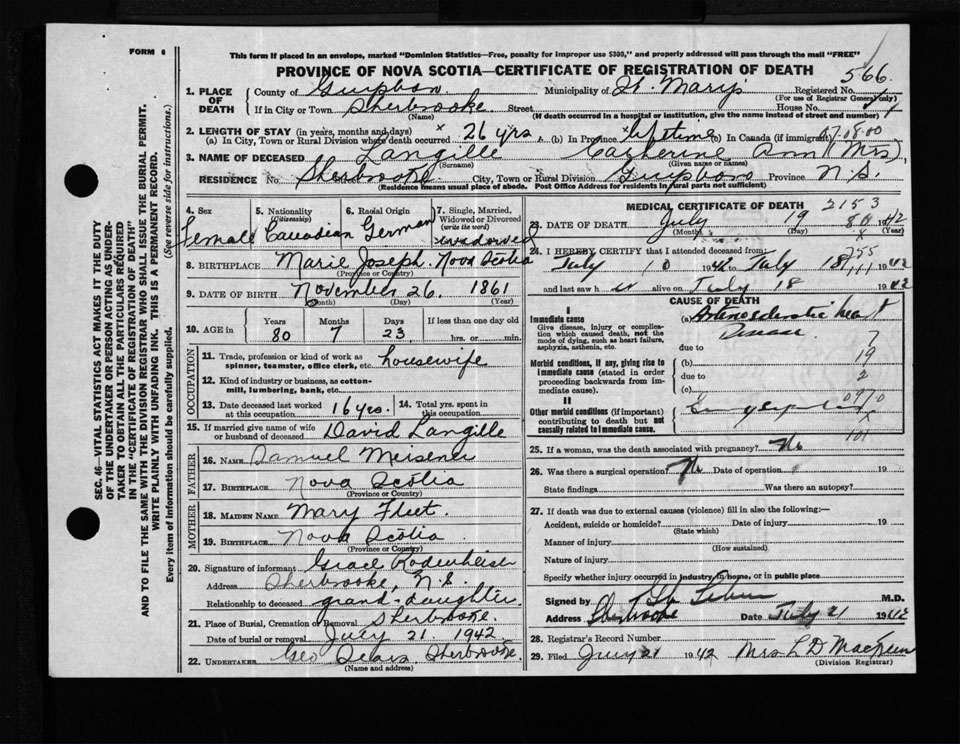 FORM 6
This form if placed in an envelope, marked "Dominion Statistics—Free, penalty for improper use $300," and properly addressed will pass through the mail "FREE"
PROVINCE OF NOVA SCOTIA—CERTIFICATE OF REGISTRATION OF DEATH
566
1. PLACE OF DEATH County of Guysboro Municipality of St. Mary's Registered No.
(For use of Registrar General only)
If in City or Town Sherbrooke Street House No.
(Name) (If death occurred in a hospital or institution, give the name instead of street and number)
2. LENGTH OF STAY (in years, months and days)
(a) In City, Town or Rural Division where death occurred 26 yrs, (b) In Province lifetime (c) In Canada (if immigrant)
3. NAME OF DECEASED Langille Catherine Ann (Mrs)
(Surname) (Given name or names)
RESIDENCE No. Sherbrooke City, Town or Rural Division Guysboro Province N.S.
(Residence means usual place of abode. Post Office Address for residents in rural parts not sufficient)
4. Sex 5. Nationality (Citizenship) 6. Racial Origin 7. Single, Married, Widowed or Divorced (write the word)
Female Canadian German widowed
8. BIRTHPLACE Marie Joseph. Nova Scotia
(Province or Country)
9. DATE OF BIRTH November 26, 1861
(Month) (Day) (Year)
10. AGE in Years Months Days If less than one day old
80 7 23 hrs. or min.
OCCUPATION
11. Trade, profession or kind of work as spinner, teamster, office clerk, etc. housewife
12. Kind of industry or business, as cotton-mill, lumbering, bank, etc.
13. Date deceased last worked at this occupation 16 yrs. 14. Total yrs. spent in this occupation
15. If married give name of wife or husband of deceased David Langille
FATHER
16. NAME Samuel Meisener
17. BIRTHPLACE Nova Scotia
(Province or Country)
MOTHER
18. MAIDEN NAME Mary Fleet.
19. BIRTHPLACE Nova Scotia
(Province or Country)
20. Signature of informant Grace Rodenheiser
Address Sherbrooke, N.S.
Relationship to deceased grand-daughter
21. Place of Burial, Cremation or Removal Sherbrooke.
Date of burial or removal July 21. 1942
22. UNDERTAKER Geo Sears Sherbrooke
(Name and address)
MEDICAL CERTIFICATE OF DEATH 2153
23. DATE OF DEATH July 19 1942
(Month) (Day) (Year)
24. I HEREBY CERTIFY that I attended deceased from:
July 10 1942 to July 18 1942
and last saw her alive on July 18 1942
CAUSE OF DEATH
I
Immediate cause
Give disease, injury or complication which caused death, not the mode of dying, such as heart failure, asphyxia, asthenia, etc.
(a) Arteriosclerotic heart Disease
due to
Morbid conditions, if any, giving rise to immediate cause (stated in order proceeding backwards from immediate cause).
(b)
due to
(c)
II
Other morbid conditions (if important) contributing to death but not causally related to immediate cause.
25. If a woman, was the death associated with pregnancy? No
26. Was there a surgical operation? No Date of operation 19
State findings Was there an autopsy?
27. If death was due to external causes (violence) fill in also the following:—
Accident, suicide or homicide? Date of injury 19
(State which)
Manner of injury
(How sustained)
Nature of injury
Specify whether injury occurred in industry, in home, or in public place
Signed by M.D.
Address Sherbrooke Date July 21 1942
28. Registrar's Record Number
29. Filed July 21 1942 Mrs L D MacKeen
(Division Registrar)
SEC. 46—VITAL STATISTICS ACT MAKES IT THE DUTY
OF THE UNDERTAKER OR PERSON ACTING AS UNDER-
TAKER TO OBTAIN ALL THE PARTICULARS REQUIRED
IN THE "CERTIFICATE OF REGISTRATION OF DEATH"
AND TO FILE THE SAME WITH THE DIVISION REGISTRAR WHO SHALL ISSUE THE BURIAL PERMIT.
WRITE PLAINLY WITH UNFADING INK. THIS IS A PERMANENT RECORD.
Every item of information should be carefully supplied. (See reverse side for instructions.)